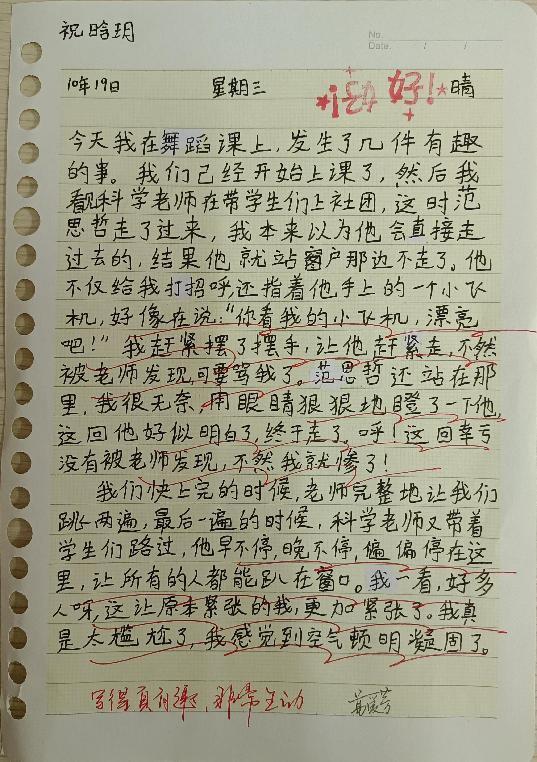 祝晗玥
No.
Date. / /
10年19日 星期三 晴
好! 好!
今天我在舞蹈课上，发生了几件有趣
的事。我们已经开始上课了，然后我
看见科学老师在带学生们上社团，这时范
思哲走了过来，我本来以为他会直接走
过去的，结果他就站窗户那边不走了。他
不仅给我打招呼，还指着他手上的一个小飞
机，好像在说：“你看我的小飞机，漂亮
吧！”我赶紧摆了摆手，让他赶紧走，不然
被老师发现，可要骂我了。范思哲还站在那
里，我很无奈，用眼睛狠狠地瞪了一下他，
这回他好似明白了，终于走了。呼！这回幸亏
没有被老师发现，不然我就惨了！
我们快上完的时候，老师完整地让我们
跳两遍，最后一遍的时候，科学老师又带着
学生们路过，他早不停，晚不停，偏偏停在这
里，让所有的人都能趴在窗口。我一看，好多
人呀，这让原本紧张的我，更加紧张了。我真
是太尴尬了，我感觉到空气顿明凝固了。
写得真有趣，非常生动